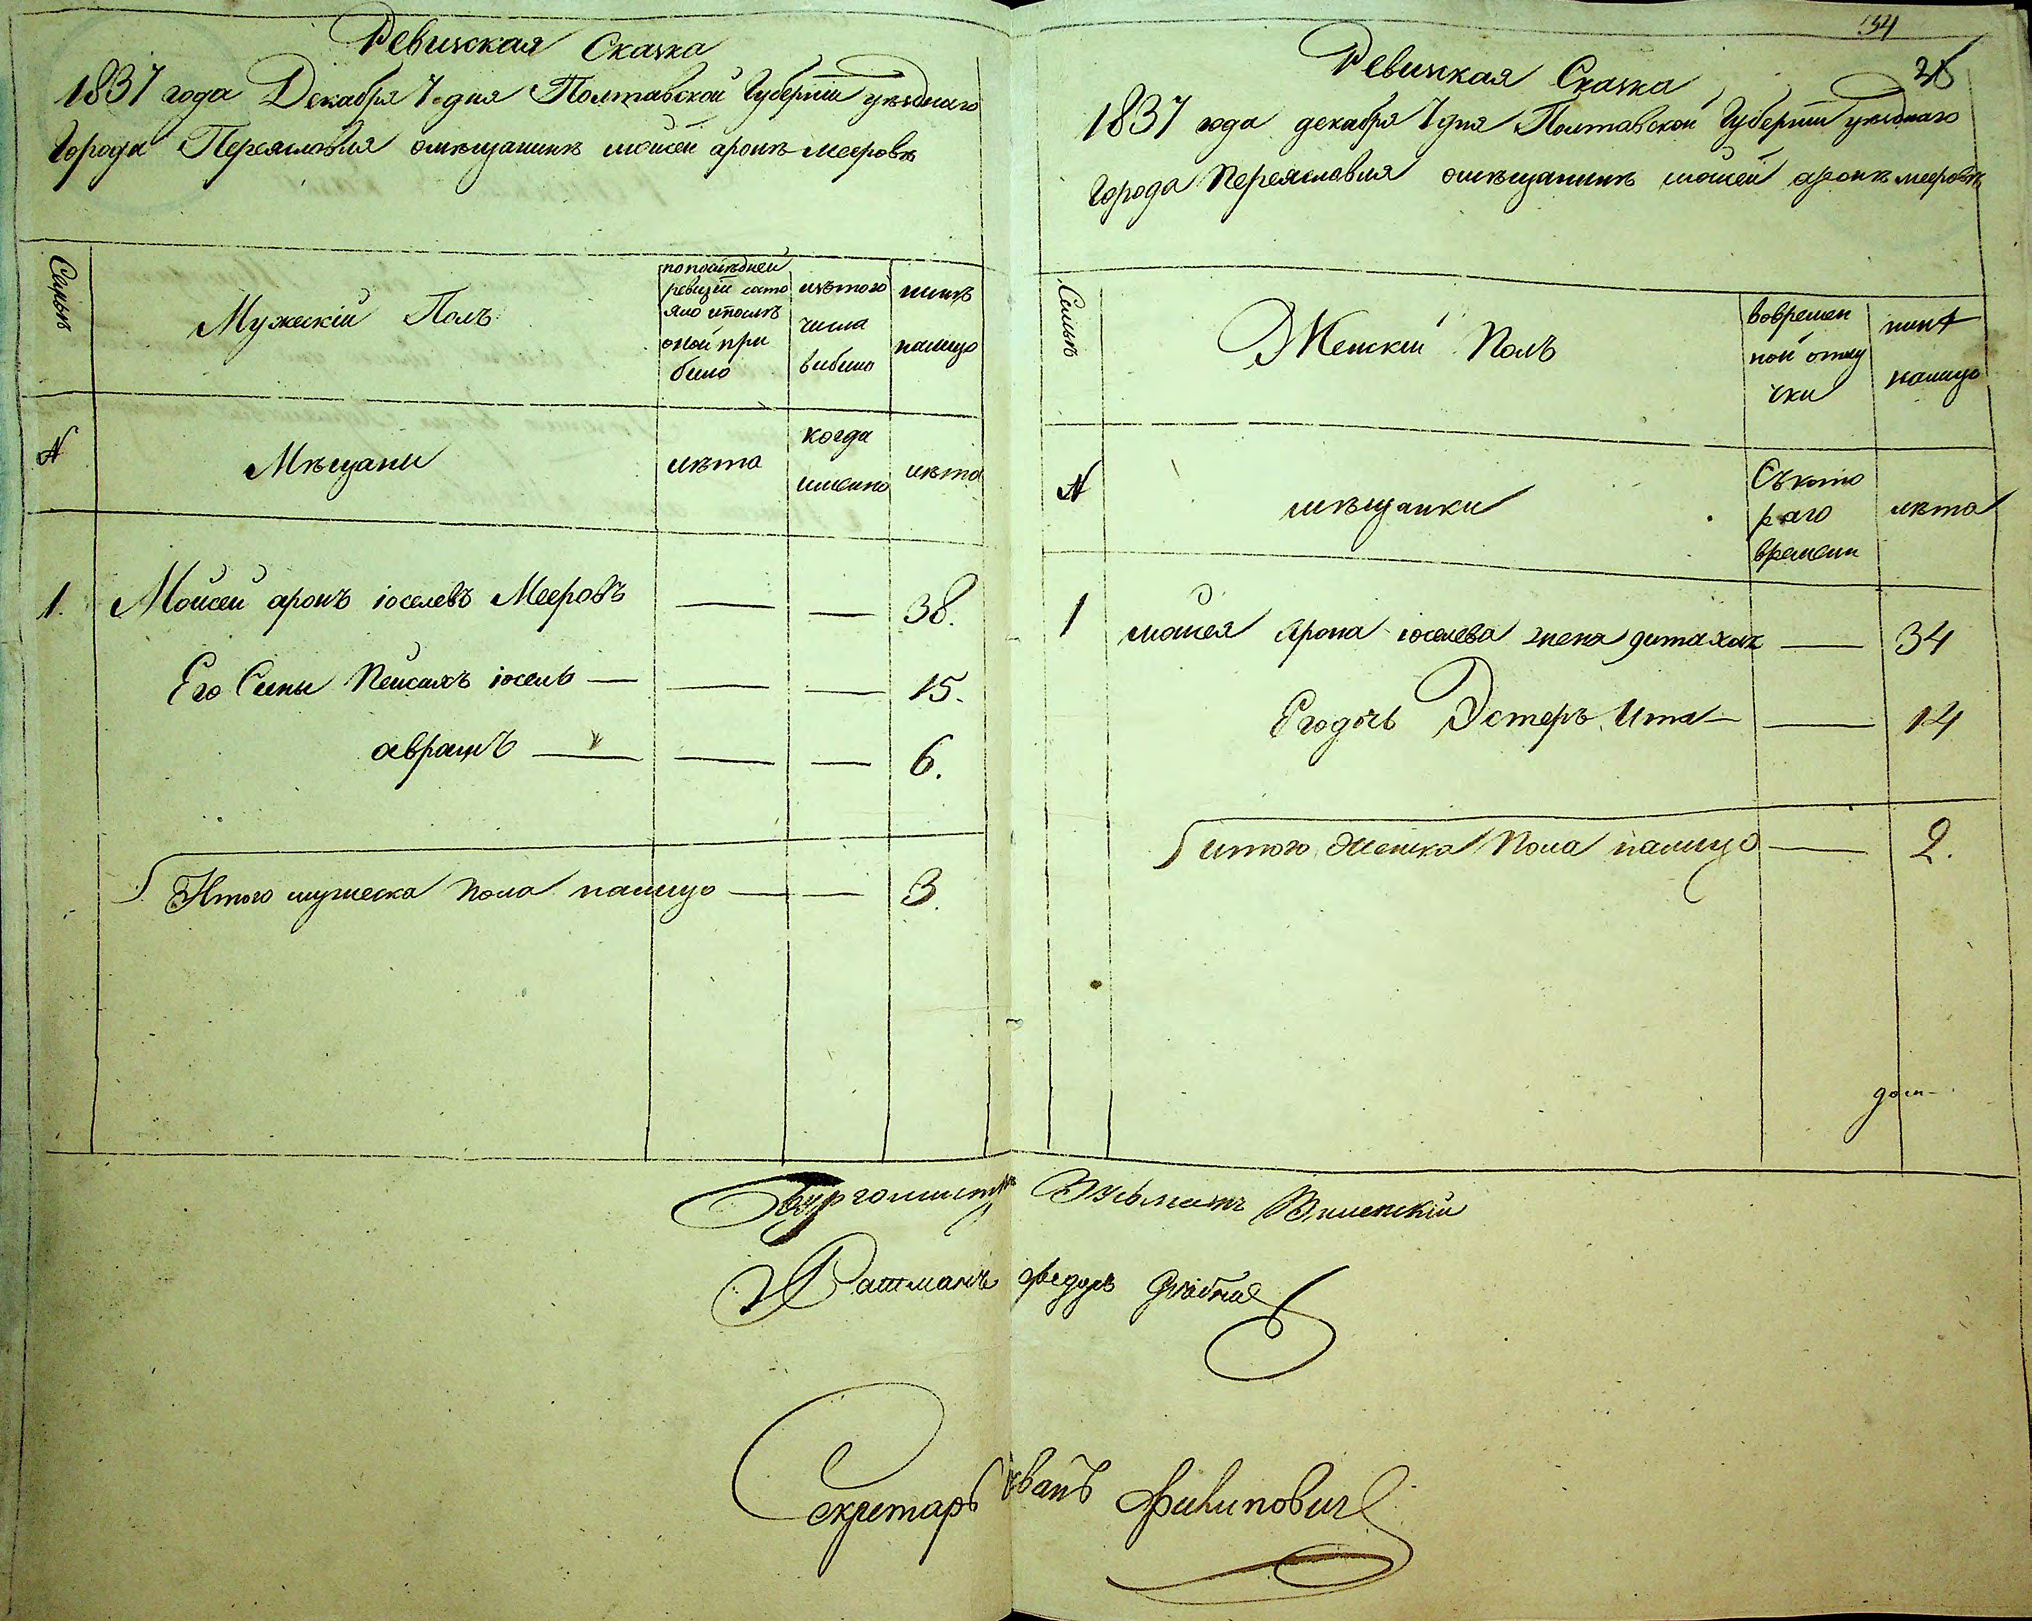 Ревизская Сказка
1837 года Декабря 7 дня Полтавской Губернии уѣзднаго
Города Переяславля омѣщанинѣ мойсей аронѣ мееровѣ
Семьи
Мужескій Полъ
по последней
ревизіи состо
яло ипослѣ
оной при
было
изтого
числа
выбыло
нинѣ
налицо
№
Мѣщани
лѣта
когда
именно
лѣта
1. Мойсей аронъ іоселевъ Мееровъ — — 38.
Его Сины Пейсахъ іосель — — — 15.
аврамъ — — — 6.
Итого мужеска пола налицо — — 3.
34
Ревизкая Сказка
1837 года декабря 7 дня Полтавской Губерніи уѣзднаго
Города Переяславля омѣщанинѣ мойсей аронѣ мееровѣ
Семьи
Женскій Полъ
вовремен
ной отлу
чки
нинѣ
налицо
№
мѣщанки
Съкото
раго
времени
лѣта
1 мойсея Арона іоселева жена — 34
Егодочь Эстеръ Ита — — 14
итого женска Пола налицо — 2.
Бургомистръ
Ратманъ федоръ
Секретарь Иванъ Филиповичъ